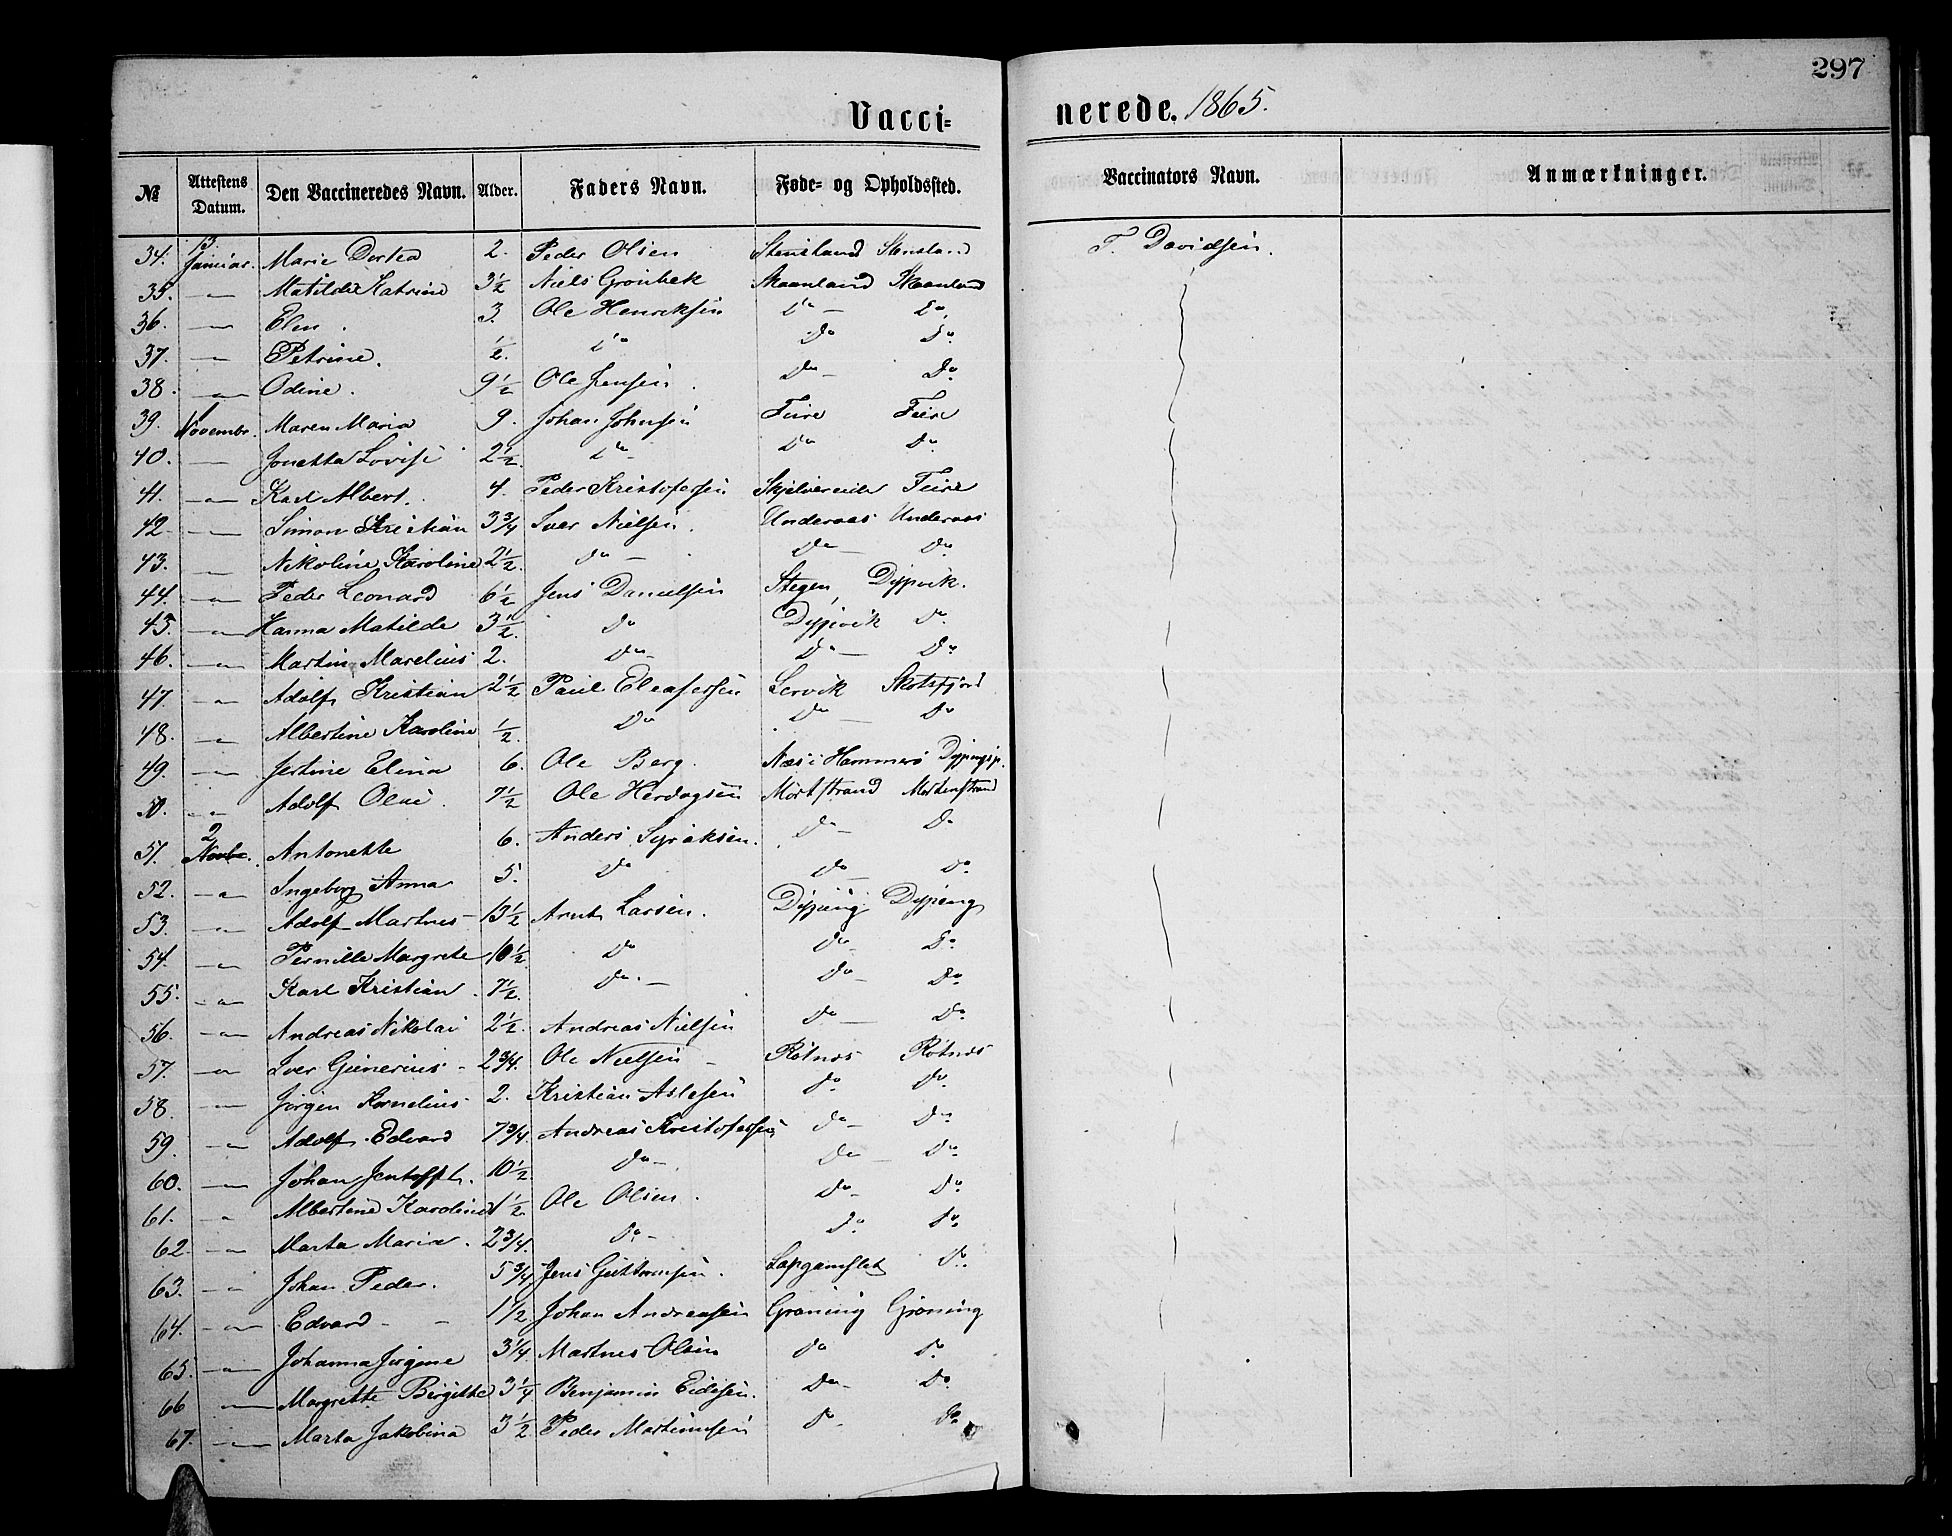 297
Vacci= nerede. 1865.
№ Attestens Datum. Den Vaccineredes Navn. Alder. Faders Navn. Føde= og Opholdssted. Vaccinators Navn. Anmærkninger.
34. 13 Januar. Marie Dortea 2. Peder Olsen Stensland Stensland T. Davidsen.
35. — Matilde Katrine 3½ Niels Grønbek Skaanland Skaanland
36. — Elen. 3. Ole Henriksen Do — Do
37. — Petrine. ½. Do Do Do
38. — Odine. 9½ Ole Jensen. Do — Do
39. Novembr. Maren Maria 9. Johan Johnsen Feire Feire
40. — Jonetta Lovise 2½. Do Do Do
41. — Karl Albert. 4. Peder Kristofersen Feire
42. — Simon Kristian 3¾ Iver Nielsen. Underaas Underaas
43. — Nikoline Karoline 2½. Do — Do — Do
44. — Peder Leonard 6½ Jens Danielsen Stegen, Dypvik.
45. — Hanna Matilde 3½. Do Dypvik Do
46. — Martin Marelius 2. Do — Do — Do
47. — Adolf Kristian 2½ Paul Eleasersen Lervik Skotsfjord
48. — Albertine Karoline ½. Do Do — Do
49. — Jertine Elina 6. Ole Berg. Næs i Hammerø
50. — Adolf Oluf. 7½ Ole Herdagsen Mortstrand Mortenstrand
51. 2 Novbr. Antonette 6. Anders Syraksen. Do — Do
52. — Ingeborg Anna 5. Do Do — Do
53. — Adolf Martnus — 13½ Arnt Larsen. Dyping Dyping
54. — Pernille Margrete 10½. Do Do — Do
55. — Karl Kristian. 7½. Do — Do — Do
56. — Andreas Nikolai 2½. Andreas Nielsen Do — Do
57. — Iver Gunerius — 2¾. Ole Nielsen — Rotnes Rotnes
58. — Jørgen Kornelius 2. Kristian Aslesen Do Do
59. — Adolf Edvard 7¾. Andreas Kristofersen Do — Do
60. — Johan Jentofft. 10½. Do —. Do — Do
61. — Albertine Karoline 1½. Ole Olsen. Do — Do
62. — Marta Maria. 2¾. Do — Do Do
63. — Johan Peder. 5¾ Jens Guttormsen. Do
64. — Edvard — — 1½ Johan Andreasen Groning Groning
65. — Johanna Jørgine 3¼. Martnes Olsen Do Do
66 — Margrette Birgitte 3¼ Benjamin Eidesen. Do — Do
67. — Marta Jakobina 3½ Peder Martinusen Do — Do